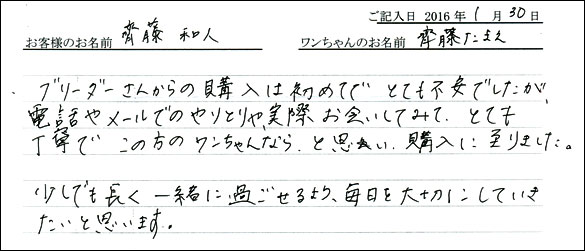 ご記入日 2016年 1月 30日
お客様のお名前 齊藤 和人 ワンちゃんのお名前 齊藤たまえ
ブリーダーさんからの購入は初めてで とても不安でしたが、
電話やメールでのやりとりや、実際 お会いしてみて、とても
丁寧で この方のワンちゃんなら、と思い、購入に至りました。
少しでも長く 一緒に過ごせるよう、毎日を大切にしていき
たいと思います。